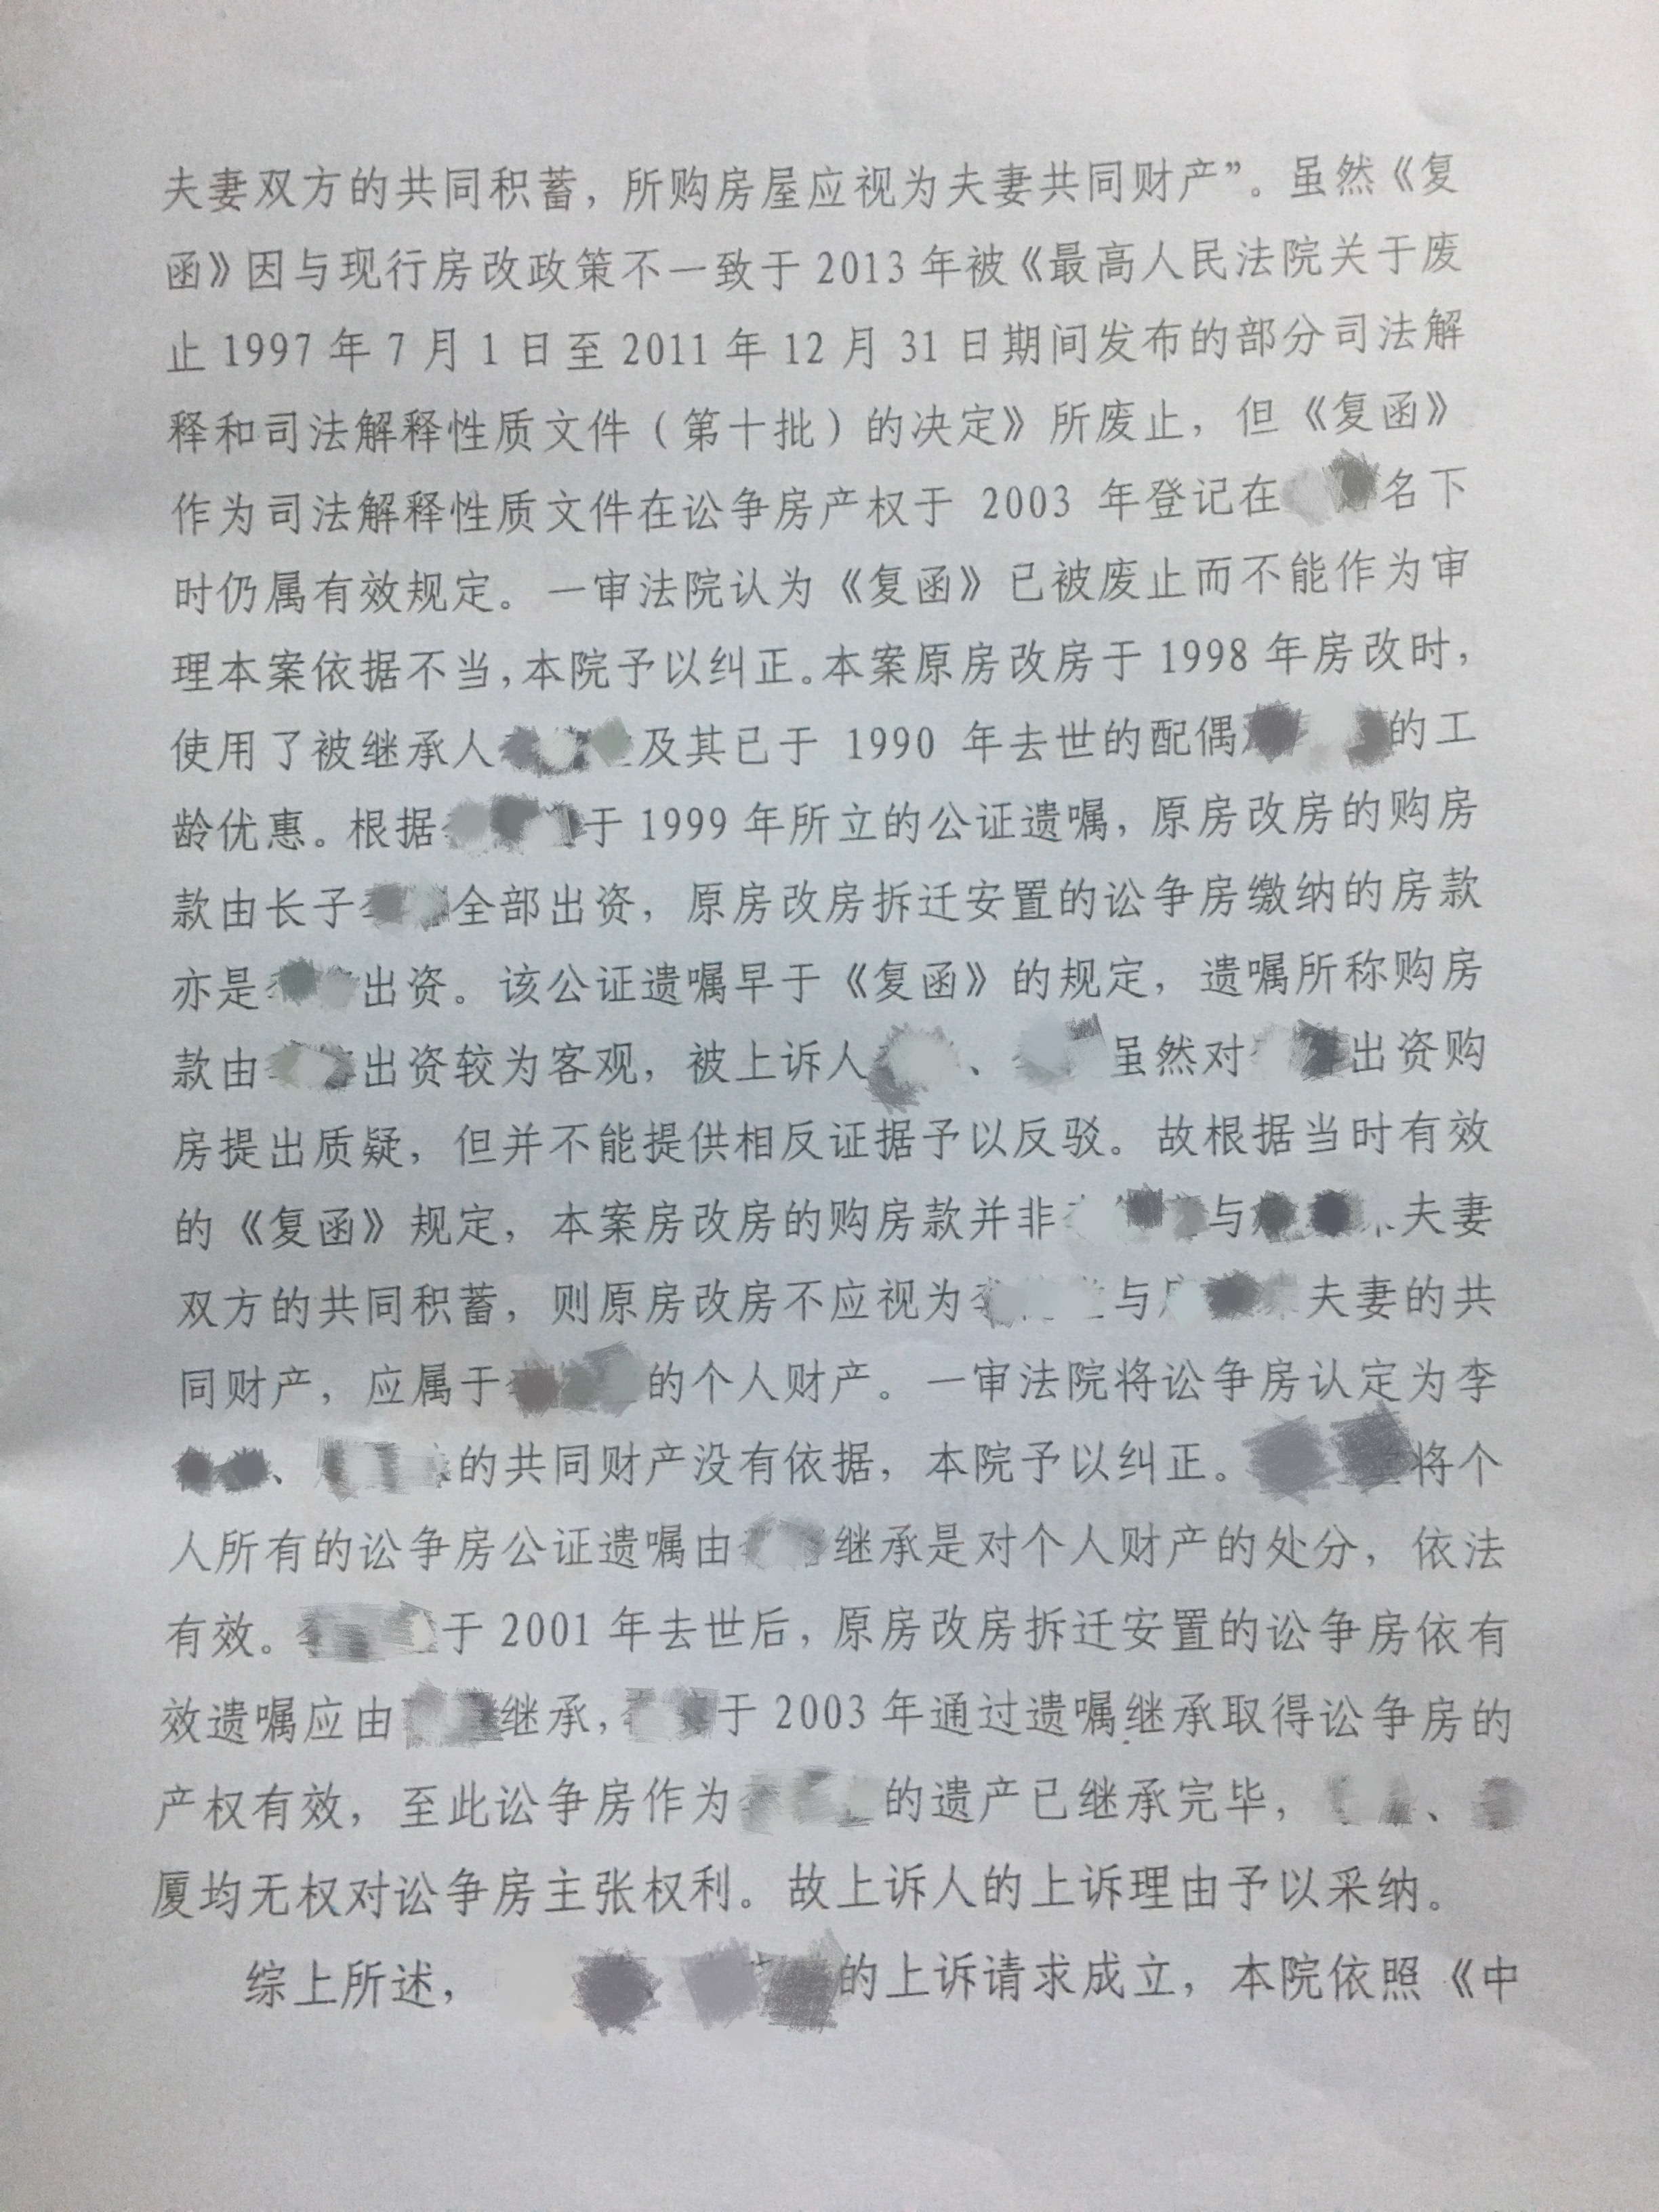 夫妻双方的共同积蓄，所购房屋应视为夫妻共同财产”。虽然《复
函》因与现行房改政策不一致于 2013 年被《最高人民法院关于废
止 1997 年 7 月 1 日至 2011 年 12 月 31 日期间发布的部分司法解
释和司法解释性质文件（第十批）的决定》所废止，但《复函》
作为司法解释性质文件在讼争房产权于 2003 年登记在 名下
时仍属有效规定。一审法院认为《复函》已被废止而不能作为审
理本案依据不当,本院予以纠正。本案原房改房于 1998 年房改时，
使用了被继承人 及其已于 1990 年去世的配偶 的工
龄优惠。根据 于 1999 年所立的公证遗嘱，原房改房的购房
款由长子 全部出资，原房改房拆迁安置的讼争房缴纳的房款
亦是 出资。该公证遗嘱早于《复函》的规定，遗嘱所称购房
款由 出资较为客观，被上诉人 、 虽然对 出资购
房提出质疑，但并不能提供相反证据予以反驳。故根据当时有效
的《复函》规定，本案房改房的购房款并非 与 夫妻
双方的共同积蓄，则原房改房不应视为 与 夫妻的共
同财产，应属于 的个人财产。一审法院将讼争房认定为李
、 的共同财产没有依据，本院予以纠正。 将个
人所有的讼争房公证遗嘱由 继承是对个人财产的处分，依法
有效。 于 2001 年去世后，原房改房拆迁安置的讼争房依有
效遗嘱应由 继承， 于 2003 年通过遗嘱继承取得讼争房的
产权有效，至此讼争房作为 的遗产已继承完毕， 、
厦均无权对讼争房主张权利。故上诉人的上诉理由予以采纳。
综上所述， 的上诉请求成立，本院依照《中